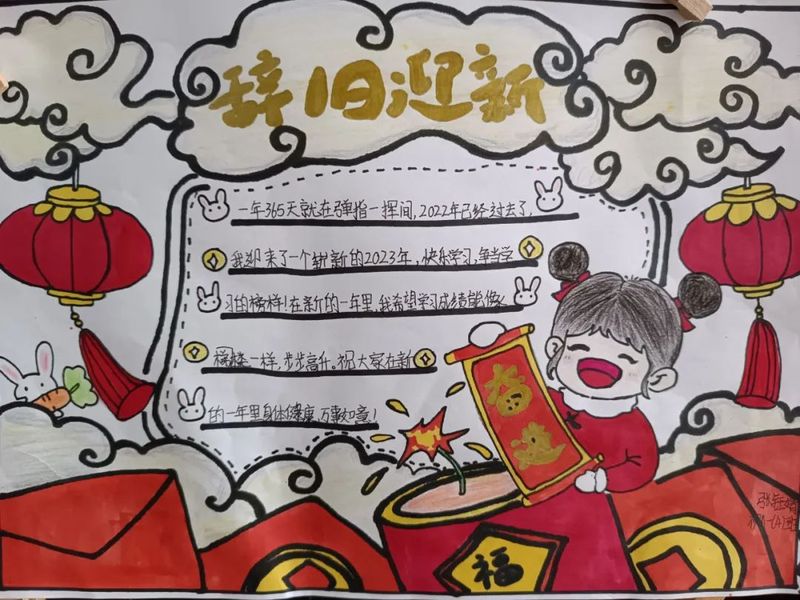 辞旧迎新
一年365天就在弹指一挥间,2022年已经过去了,
我迎来了一个崭新的2023年,快乐学习,争当学
习的榜样!在新的一年里,我希望学习成绩能像
楼梯一样,步步高升。祝大家在新
的一年里身体健康,万事如意!
奋进
福